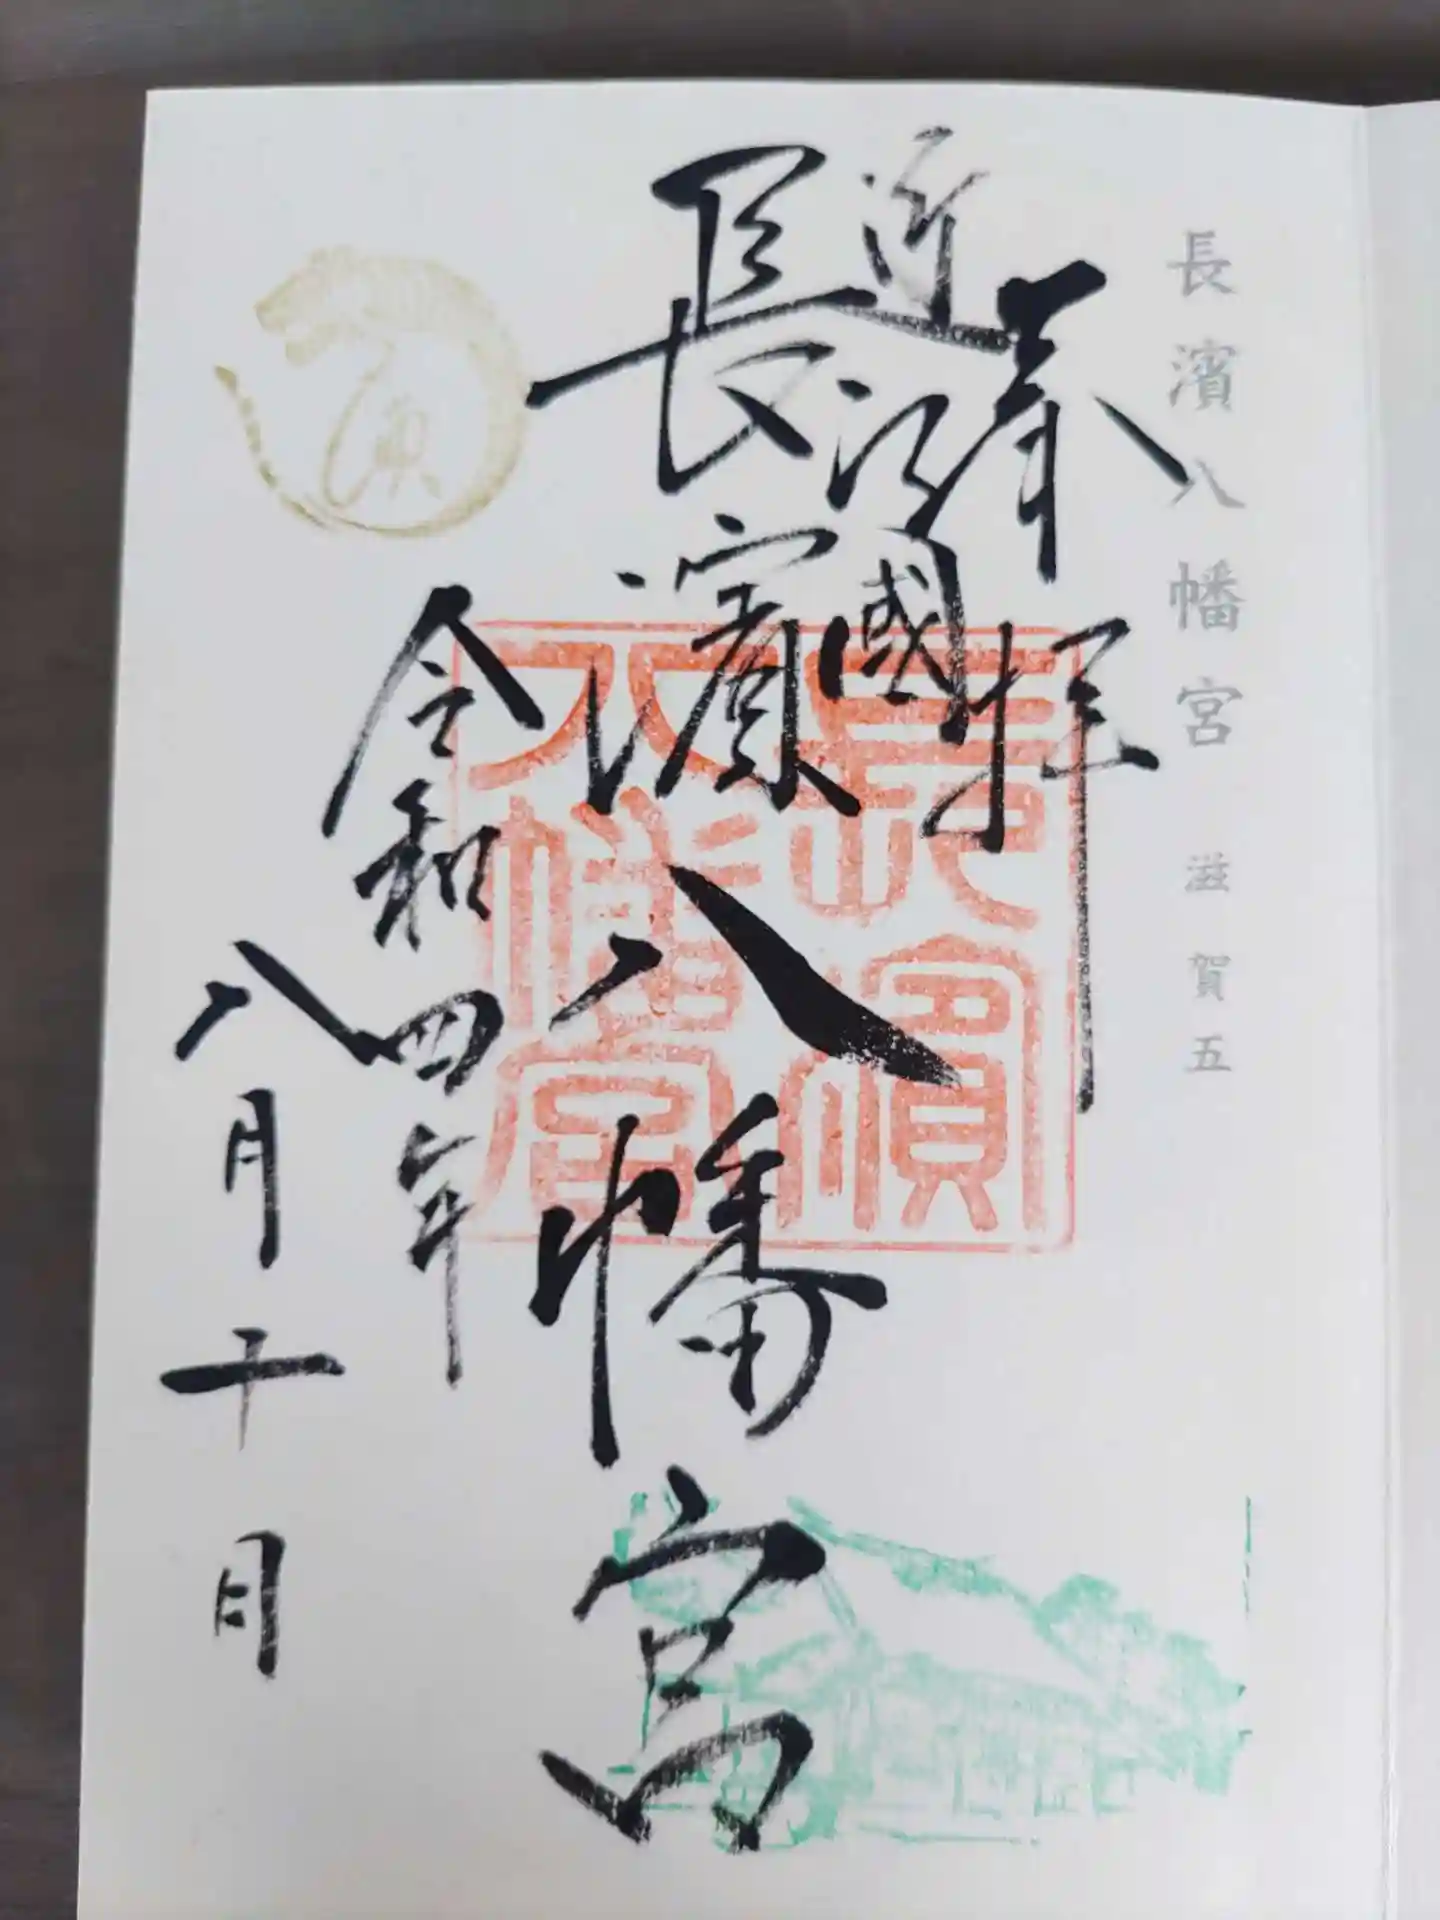 長濱八幡宮 滋賀五
奉拝
近江國
長濱八幡宮
長濱
八幡宮
令和四年
八月十日
寅